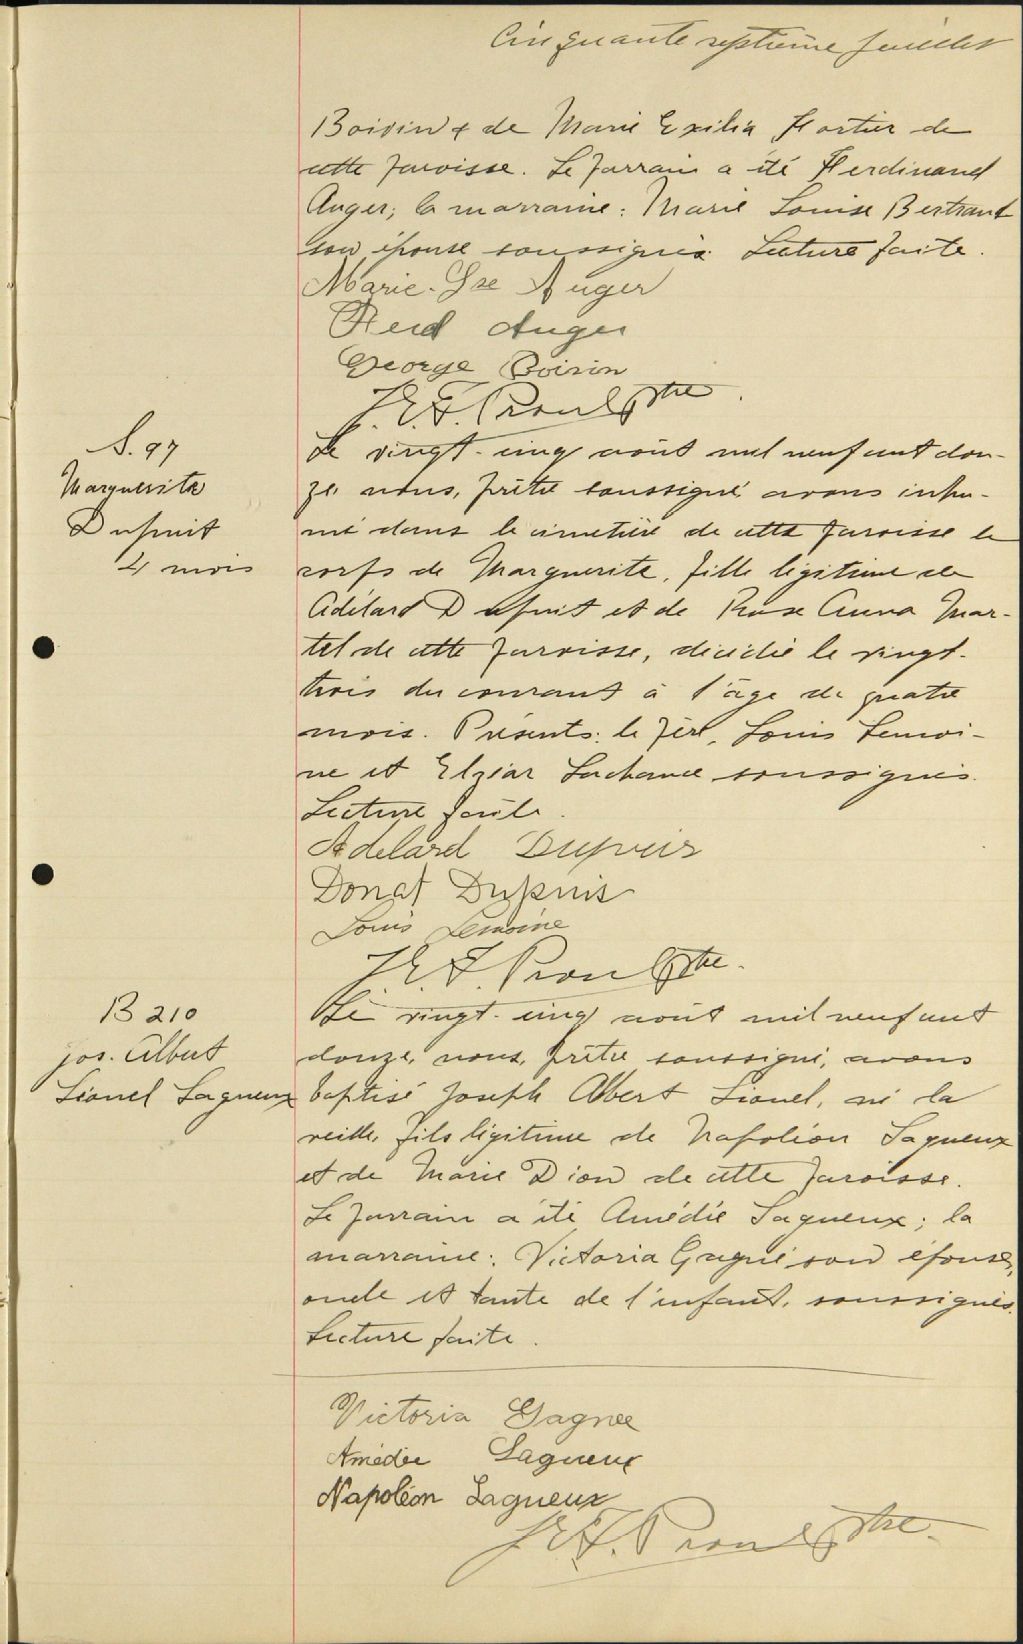 Cinquante septième feuillet
Boivin & de Marie Exilia Fortier de
cette paroisse. Le parrain a été Ferdinand
Auger; la marraine: Marie Louise Bertrand
son épouse soussignés. Lecture faite.
Marie-Lse Auger
Ferd Auger
George Boivin
J. E. F. Proulx ptre.
S. 97
Marguerite
Dupuit
4 mois
Le vingt-cinq août mil neuf cent dou-
ze, nous, prêtre soussigné, avons inhu-
mé dans le cimetière de cette paroisse le
corps de Marguerite, fille légitime de
Adélard Dupuit et de Rose Anna Mar-
tel de cette paroisse, décédée le vingt-
trois du courant à l'âge de quatre
mois. Présents: le père, Louis Lemoi-
ne et Elzéar Lachance soussignés.
Lecture faite.
Adelard Dupuis
Donat Dupuis
Louis Lemoine
J. E. F. Proulx ptre.
B 210
Jos. Albert
Lionel Lagueux
Le vingt-cinq août mil neuf cent
douze, nous, prêtre soussigné, avons
baptisé Joseph Albert Lionel, né la
veille, fils légitime de Napoléon Lagueux
et de Marie Dion de cette paroisse.
Le parrain a été Amédée Lagueux; la
marraine: Victoria Gagné son épouse,
oncle et tante de l'enfant, soussignés.
Lecture faite.
Victoria Gagnee
Amédée Lagueux
Napoléon Lagueux
J. E. F. Proulx ptre.